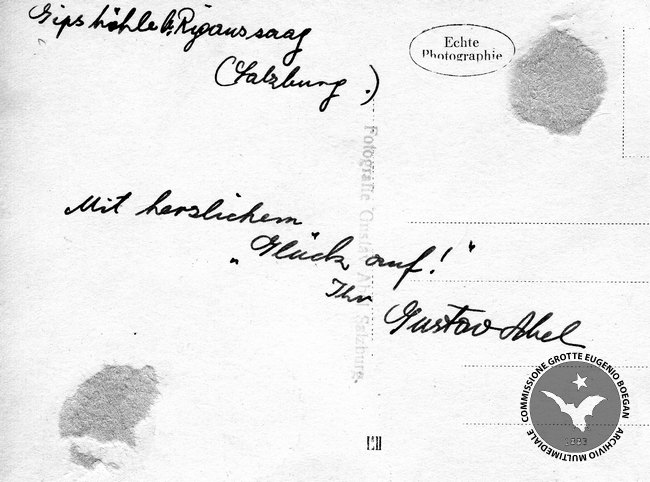 Gipshöhle b. Rigaussaag
(Salzburg.)
Echte
Photographie
Mit herzlichem
„Glück auf!"
Ihr Gustav Abel
Fotografie Gustav Abel Salzburg.
COMMISSIONE GROTTE EUGENIO BOEGAN
1883
ARCHIVIO MULTIMEDIALE